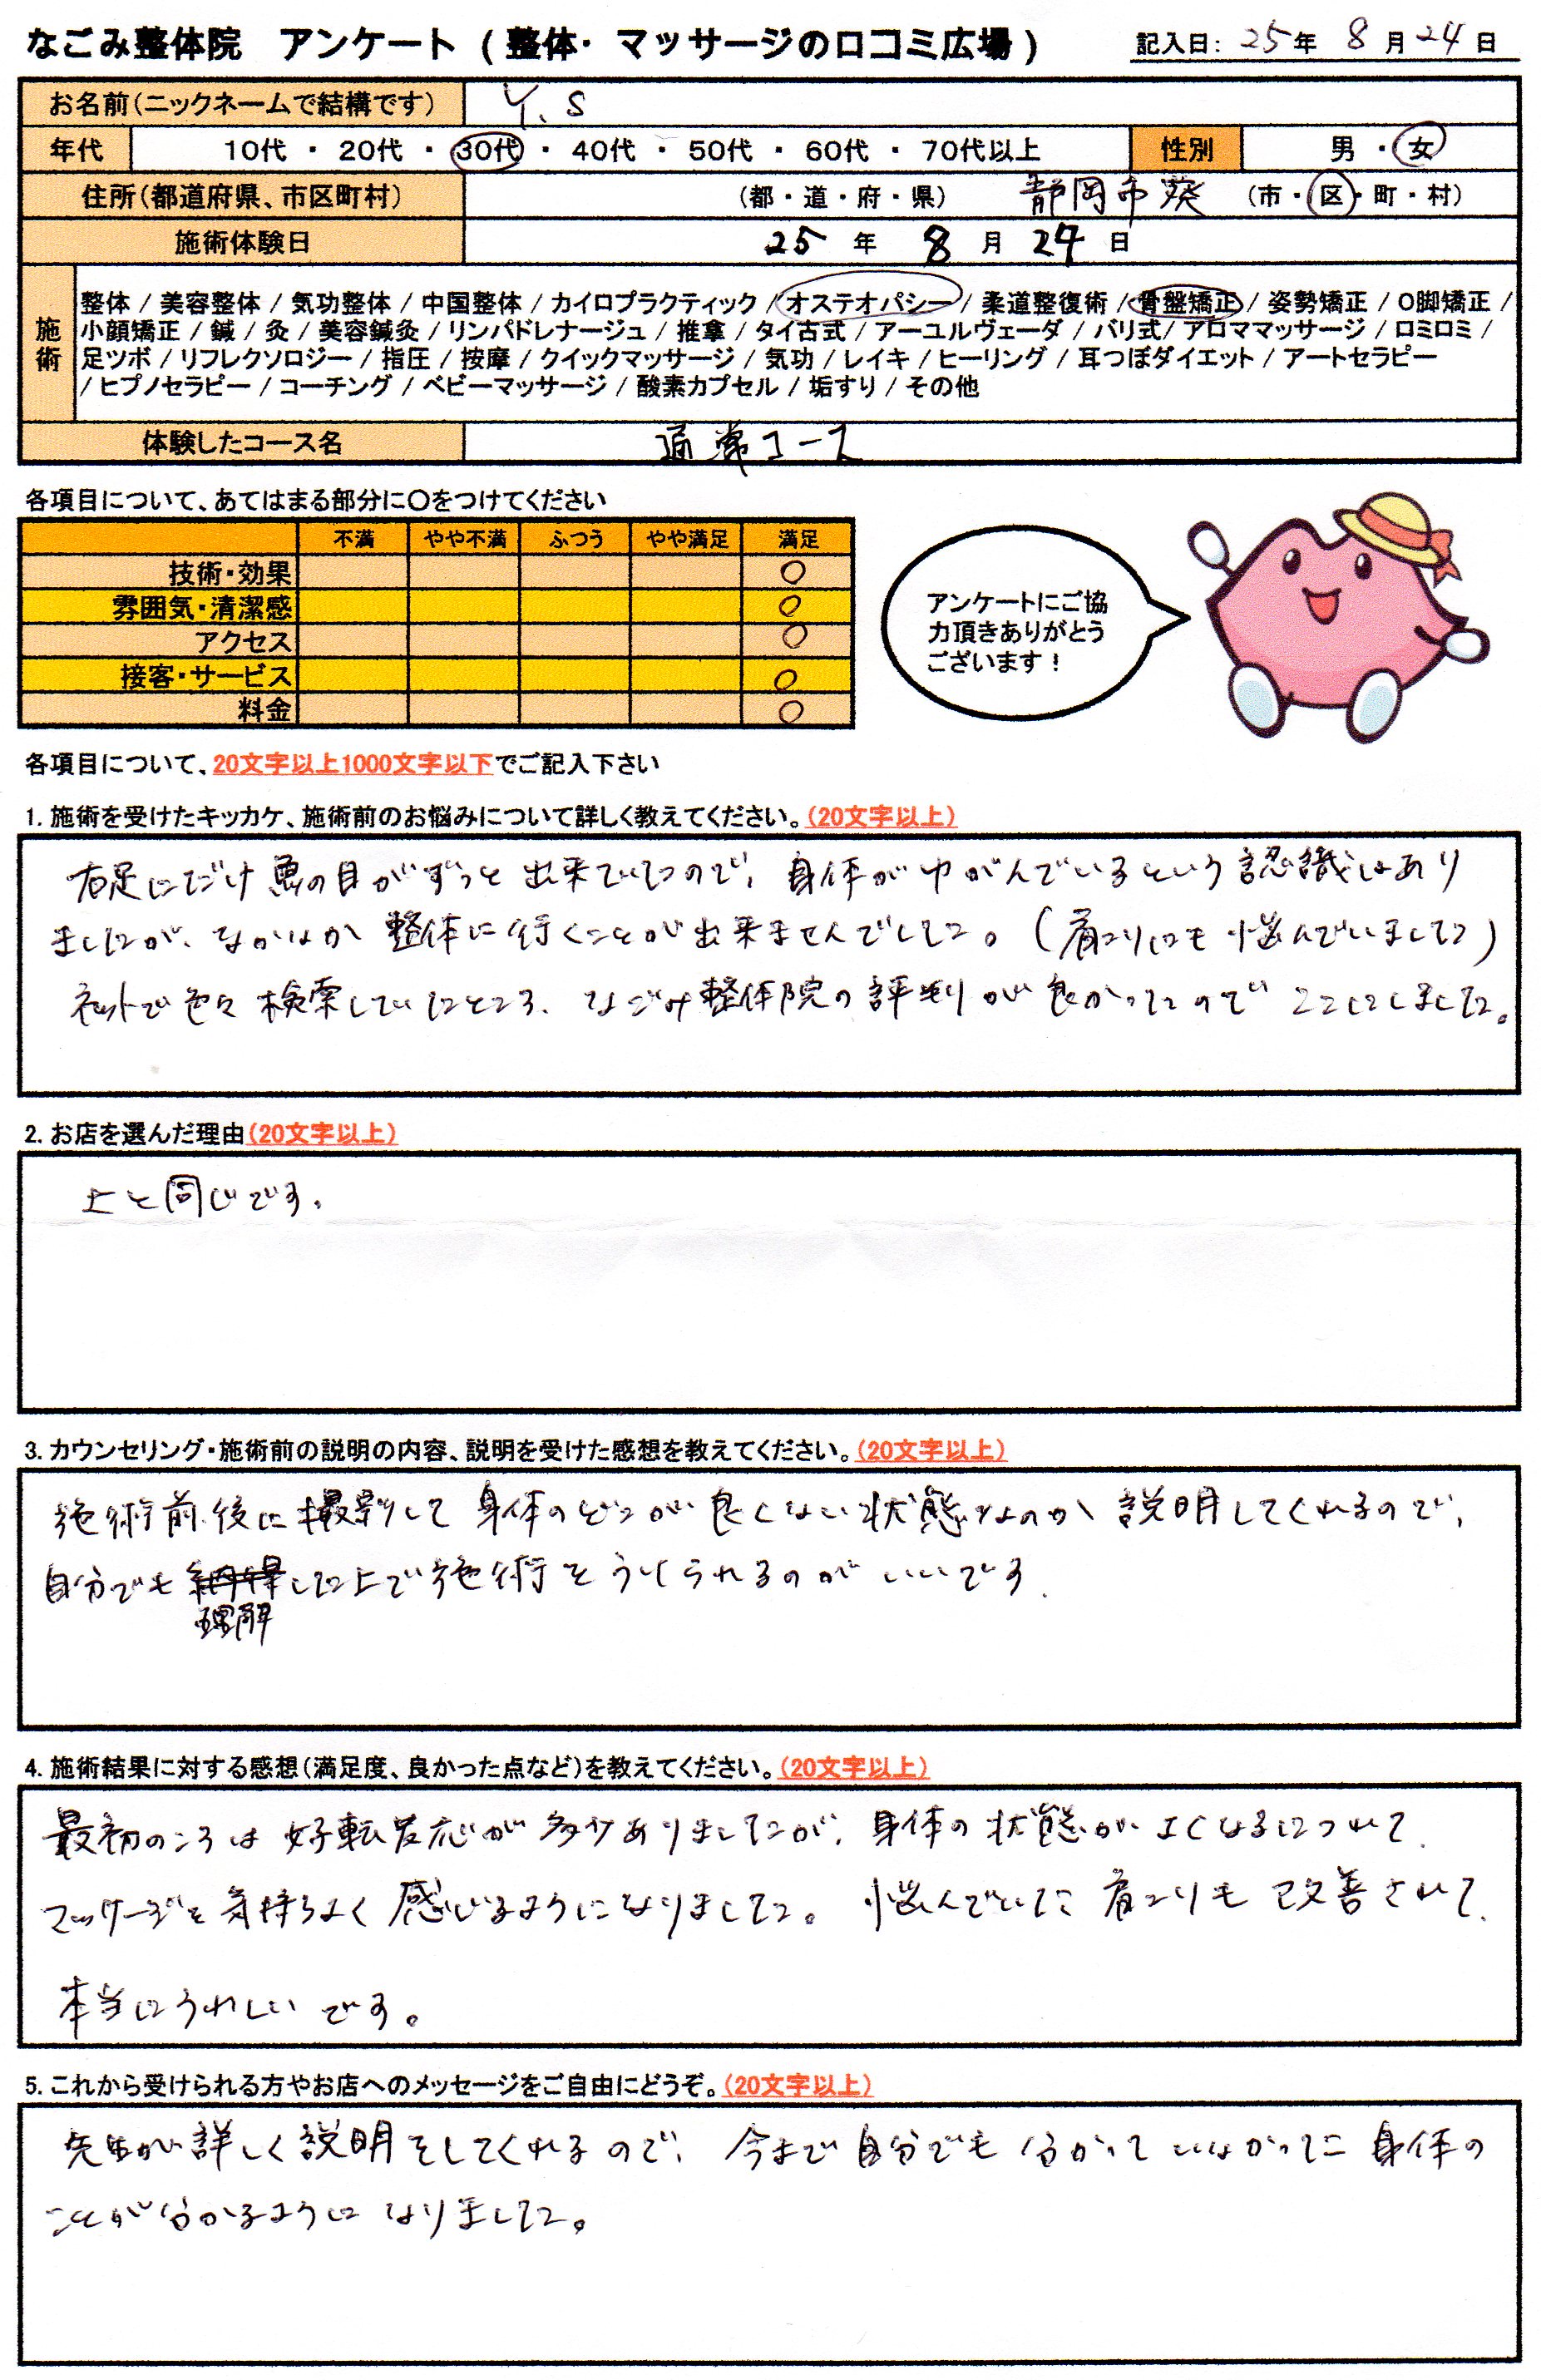 なごみ整体院 アンケート（整体・マッサージの口コミ広場）
記入日：25年 8月24日
お名前（ニックネームで結構です） Y.S
年代 10代 ・ 20代 ・ 30代 ・ 40代 ・ 50代 ・ 60代 ・ 70代以上 性別 男 ・ 女
住所（都道府県、市区町村） （都・道・府・県） 静岡市葵 （市・区・町・村）
施術体験日 25 年 8 月 24 日
施術
整体 / 美容整体 / 気功整体 / 中国整体 / カイロプラクティック / オステオパシー / 柔道整復術 / 骨盤矯正 / 姿勢矯正 / O脚矯正 /
小顔矯正 / 鍼 / 灸 / 美容鍼灸 / リンパドレナージュ / 推拿 / タイ古式 / アーユルヴェーダ / バリ式 / アロママッサージ / ロミロミ /
足ツボ / リフレクソロジー / 指圧 / 按摩 / クイックマッサージ / 気功 / レイキ / ヒーリング / 耳つぼダイエット / アートセラピー
/ ヒプノセラピー / コーチング / ベビーマッサージ / 酸素カプセル / 垢すり / その他
体験したコース名 通常コース
各項目について、あてはまる部分に〇をつけてください
不満 やや不満 ふつう やや満足 満足
技術・効果 〇
雰囲気・清潔感 〇
アクセス 〇
接客・サービス 〇
料金 〇
アンケートにご協
力頂きありがとう
ございます！
各項目について、20文字以上1000文字以下でご記入下さい
1. 施術を受けたキッカケ、施術前のお悩みについて詳しく教えてください。（20文字以上）
右足にだけ魚の目がずっと出来ていたので、身体がゆがんでいるという認識はあり
ましたが、なかなか整体に行くことが出来ませんでした。（肩こりにも悩んでいました）
ネットで色々検索していたところ、なごみ整体院の評判が良かったのでここにしました。
2. お店を選んだ理由（20文字以上）
上と同じです。
3. カウンセリング・施術前の説明の内容、説明を受けた感想を教えてください。（20文字以上）
施術前後に撮影して身体のどこが良くない状態なのか説明してくれるので、
自分でも納得した上で施術をうけられるのがいいです。
理解
4. 施術結果に対する感想（満足度、良かった点など）を教えてください。（20文字以上）
最初のころは好転反応が多少ありましたが、身体の状態がよくなるにつれて、
マッサージを気持ちよく感じるようになりました。悩んでいた肩こりも改善されて、
本当にうれしいです。
5. これから受けられる方やお店へのメッセージをご自由にどうぞ。（20文字以上）
先生が詳しく説明をしてくれるので、今まで自分でも分かっていなかった身体の
ことが分かるようになりました。